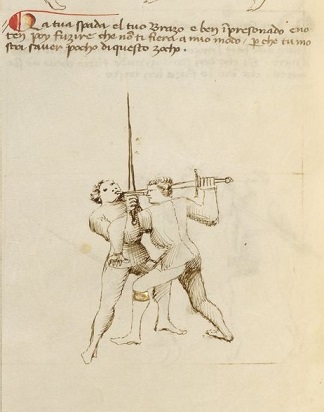 La tua spada el tuo brazo e ben ĩpresonado e no
ten poy fuzire che nõ ti fiera a mio modo / ꝑ che tu mo
stri saver pocho di questo zogho.